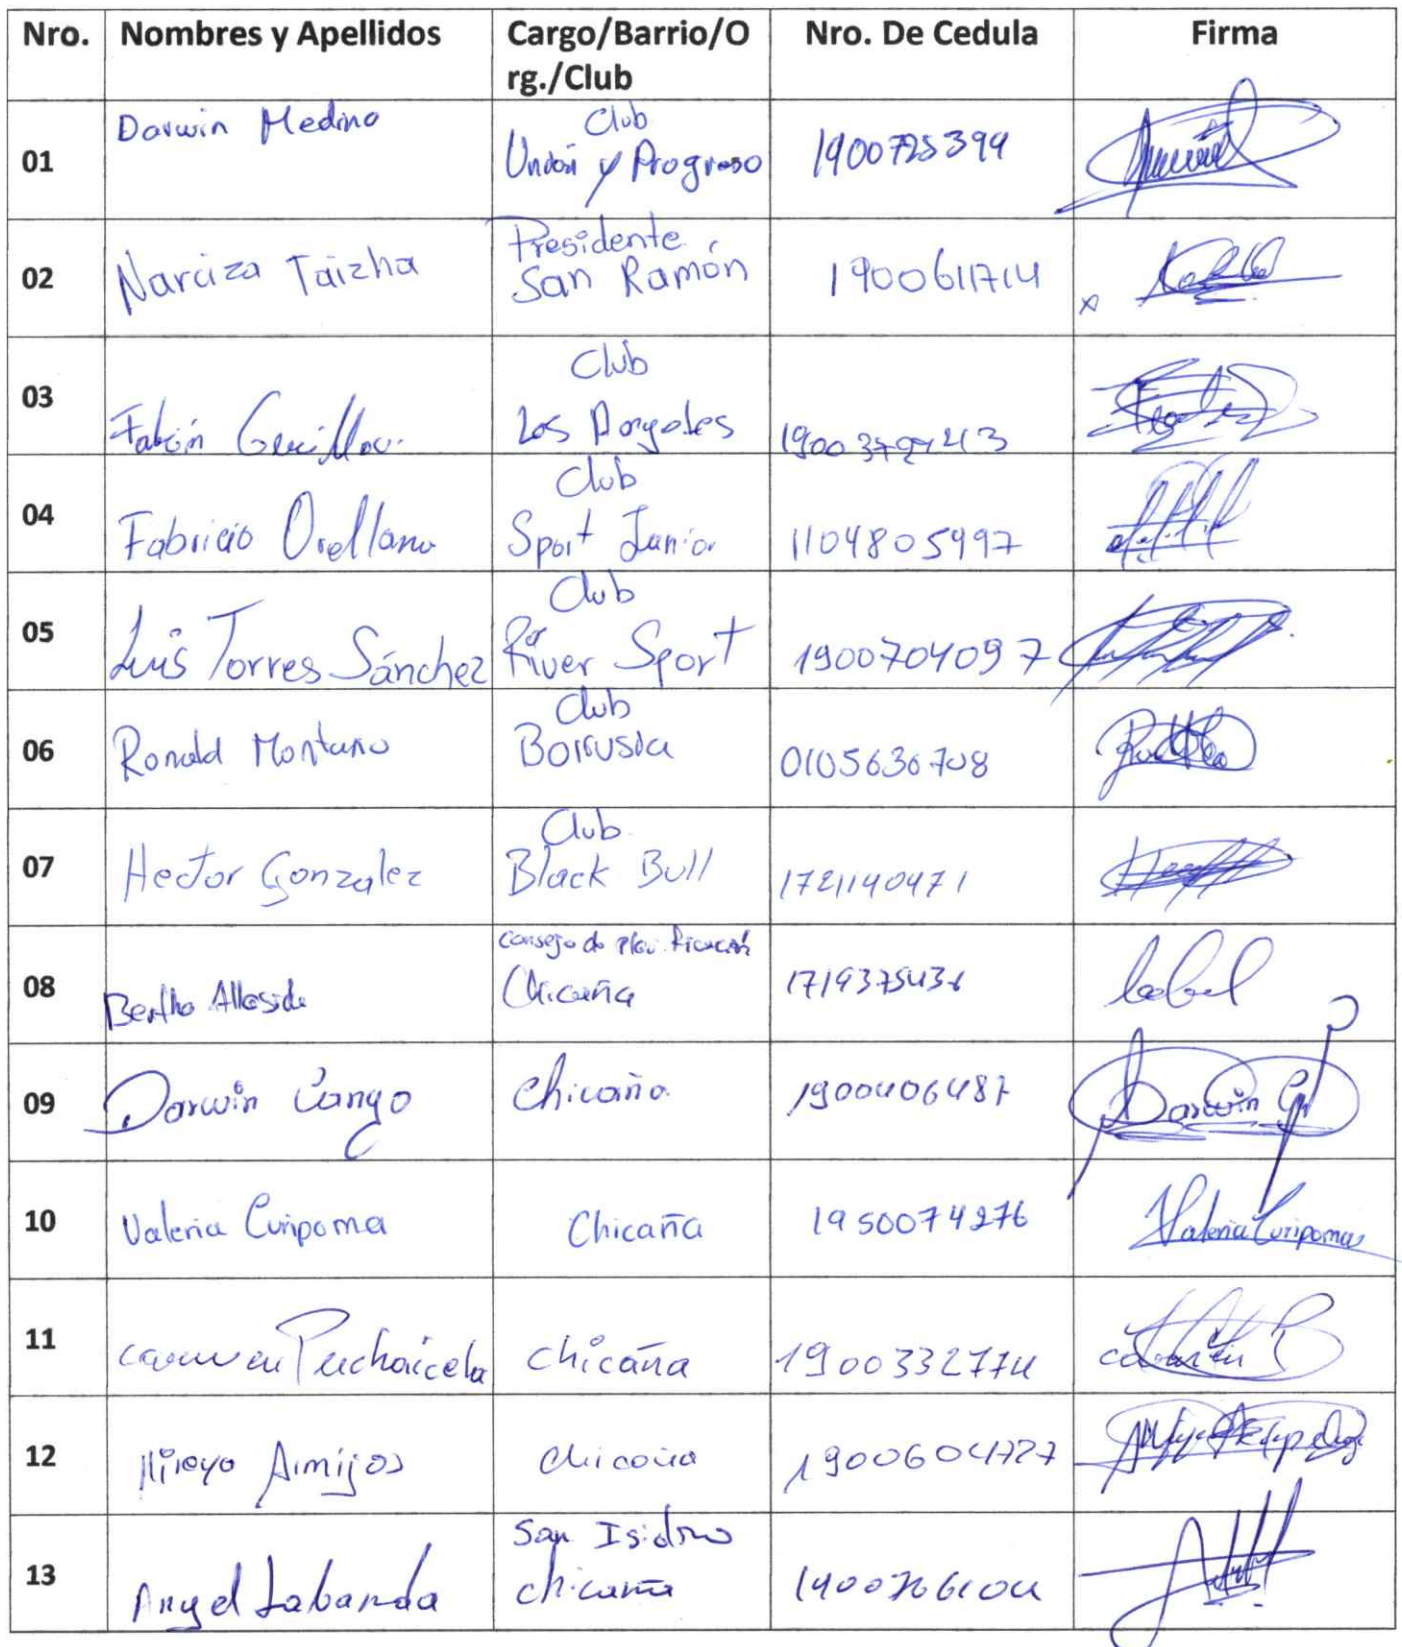 Nro. Nombres y Apellidos Cargo/Barrio/O Nro. De Cedula Firma
rg./Club
01 Darwin Medina Club
Unión y Progreso 1900725399
02 Narciza Taizha Presidente
San Ramón 1900611714
03 Fabián Club
Los 
04 Fabricio Orellana Club
Sport Junior 1104805997
05 Luis Torres Sánchez Club
River Sport 1900704097
06 Ronald Montaño Club
Borrusia 0105636708
07 Hector Gonzalez Club
Black Bull 1721140471
08 Bertha Consejo de Planificación
Chicaña
09 Darwin Cango Chicaña 1900406487 Darwin
10 Valeria Curipoma Chicaña 1950074276 Valeria Curipoma
11 Carmen Puchaicela Chicaña 1900332774
12 Armijos Chicaña 1900604727
13 Angel Labanda San Isidro
Chicaña